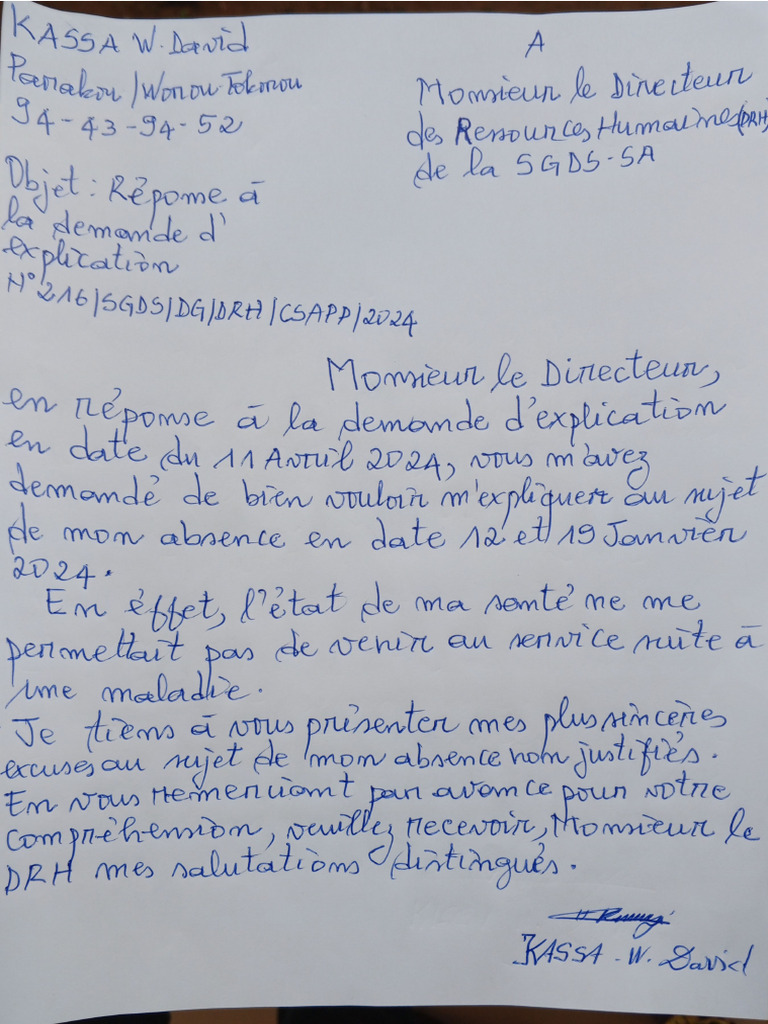 KASSA W. David
Parrakou/Worou-Tokorou
94-43-94-52
A
Monsieur le Directeur
des Ressources Humaines (DRH)
de la SGDS-SA
Objet : Réponse à
la demande d'
explication
N° 216/SGDS/DG/DRH/CSAPP/2024
Monsieur le Directeur,
en réponse à la demande d'explication
en date du 11 Avril 2024, vous m'avez
demandé de bien vouloir m'expliquer au sujet
de mon absence en date 12 et 19 Janvièr
2024.
En éffet, l'état de ma santé ne me
permettait pas de venir au service suite à
une maladie.
Je tiens à vous présenter mes plus sincères
excuses au sujet de mon absence non justifiés.
En vous remerciant par avance pour votre
compréhension, veuillez recevoir, Monsieur le
DRH mes salutations distingués.
KASSA - W. David